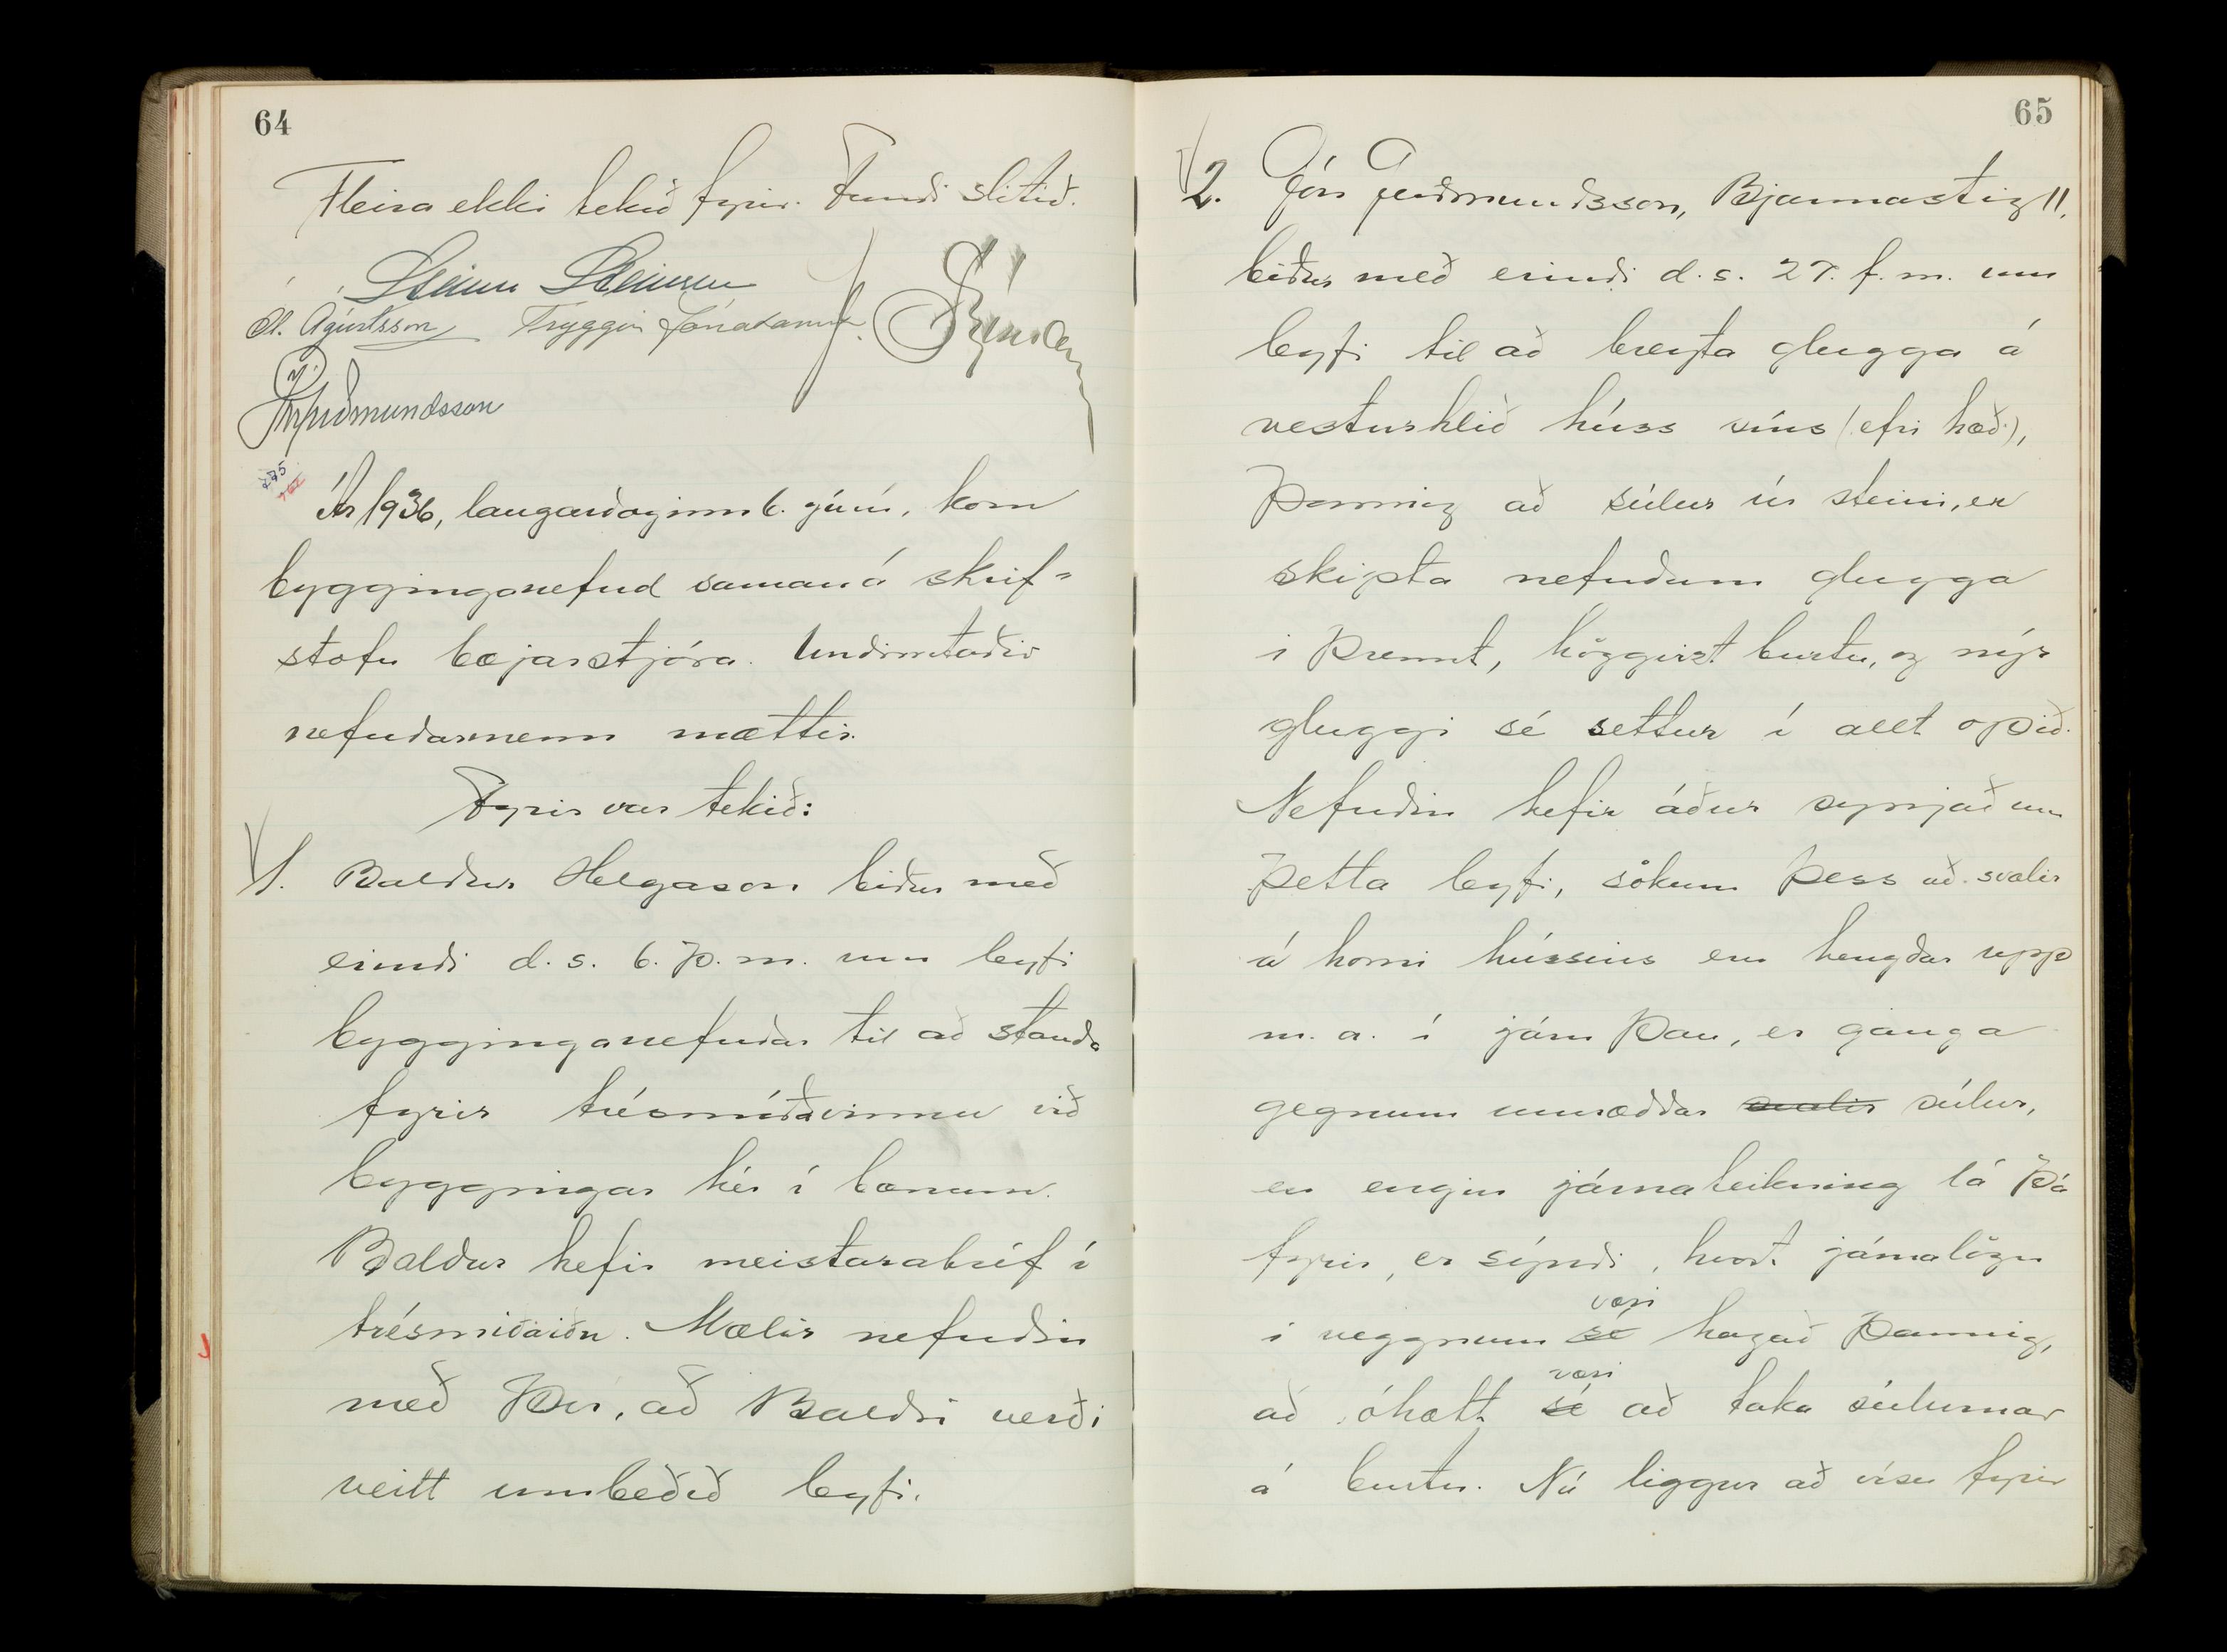 64
Fleira ekki tekið fyrir. Fundi slitið.
Steinn Steinsen
Ól. Ágústsson Tryggvi Jónatansson
Jón Guðmundsson
Ár 1936, laugardaginn 6. júní, kom
bygginganefnd saman á skrif=
stofu bæjarstjóra. Undirritaðir
nefndarmenn mættir.
Fyrir var tekið:
1. Baldur Helgason biður með
erindi d.s. 6. þ.m. um leyfi
bygginganefndar til að standa
fyrir trésmíðavinnu við
byggingar hér í bænum.
Baldur hefir meistarabréf í
trésmíðaiðn. Mælir nefndin
með því, að Baldri verði
veitt umbeðið leyfi.
65
2. Jón Guðmundsson, Bjarmastíg 11,
biður með erindi d.s. 27. f.m. um
leyfi til að breyta glugga á
vesturhlið húss síns (efri hæð),
þannig að súlur úr steini, er
skipta nefndum glugga
í þrennt, höggvist burtu, og nýr
gluggi sé settur í allt opið.
Nefndin hefir áður synjað um
þetta leyfi, sökum þess að svalir
á horni hússins eru hengdar upp
m.a. í járn þau, er ganga
gegnum umræddar svalir súlur,
en engin járnateikning lá þá
fyrir, er sýndi, hvort járnalögn
væri
í veggnum sé hagað þannig,
væri
að óhætt sé að taka súlurnar
á burtu. Nú liggur að vísu fyrir